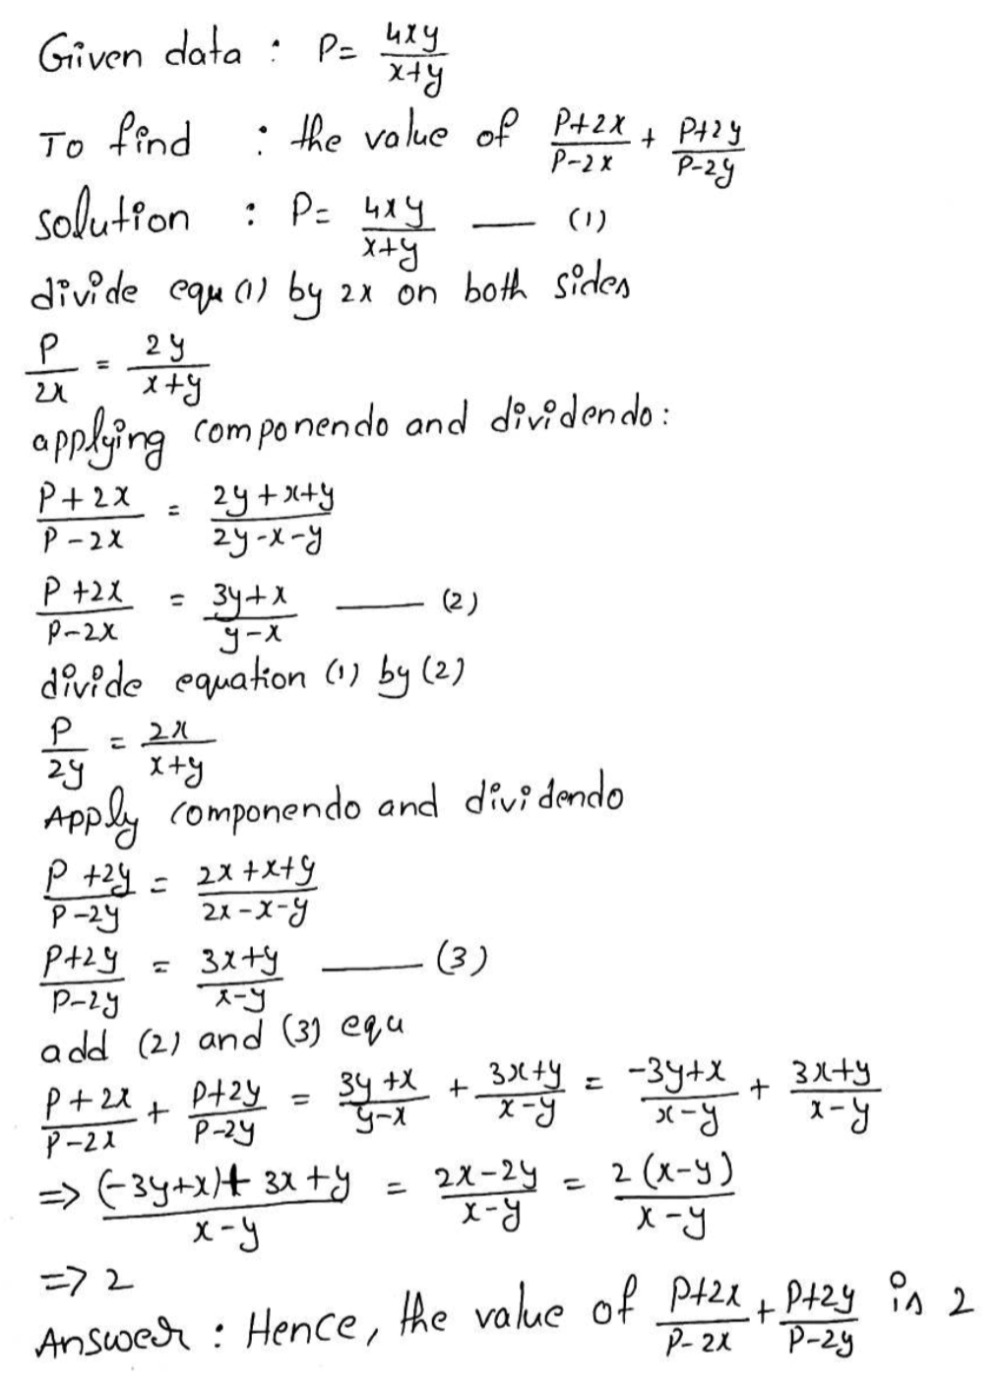 Given data : P = 4xy/x+y
To find : the value of P+2x/P-2x + P+2y/P-2y
solution : P = 4xy/x+y —— (1)
divide equ (1) by 2x on both sides
P/2x = 2y/x+y
applying componendo and dividendo:
P+2x/P-2x = 2y+x+y/2y-x-y
P+2x/P-2x = 3y+x/y-x —— (2)
divide equation (1) by (2)
P/2y = 2x/x+y
Apply componendo and dividendo
P+2y/P-2y = 2x+x+y/2x-x-y
P+2y/P-2y = 3x+y/x-y —— (3)
add (2) and (3) equ
P+2x/P-2x + P+2y/P-2y = 3y+x/y-x + 3x+y/x-y = -3y+x/x-y + 3x+y/x-y
=> (-3y+x)+3x+y/x-y = 2x-2y/x-y = 2(x-y)/x-y
=> 2
Answer : Hence, the value of P+2x/P-2x + P+2y/P-2y is 2